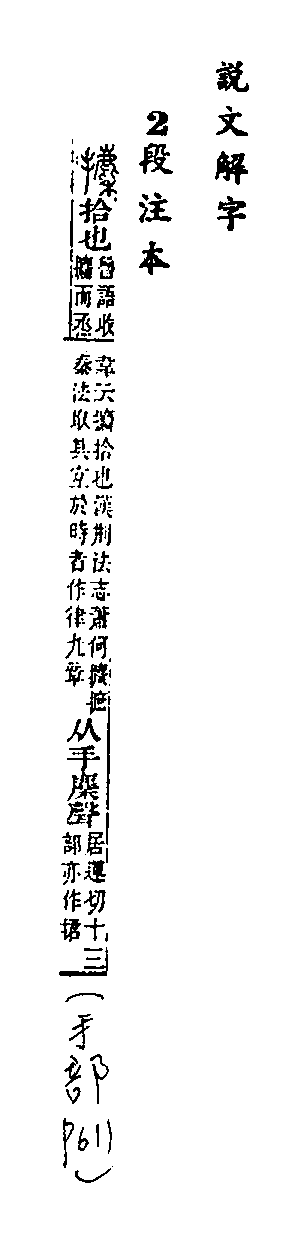 說文解字
2段注本
攈拾也
魯語收
攈而烝
韋云攈拾也漢荆法志蕭何攈摭
秦法取其宜於時者作律九章
从手麇聲
居運切十三
部亦作捃
(手部P61)